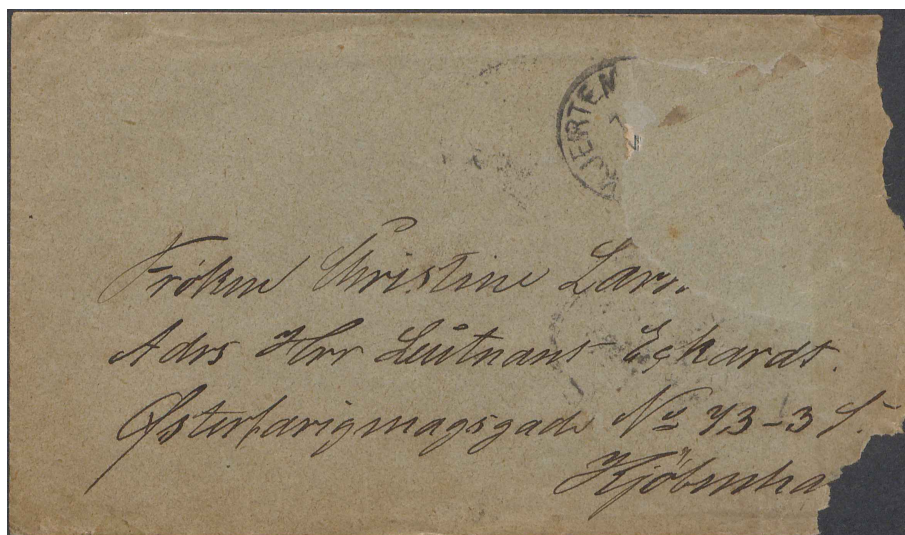 JERTEM
Frøken Christine Lars.
Adrs Hrr Leutnant Eckardt.
Østerfarigmagsgade No 73-3 S.
Kjöbenha